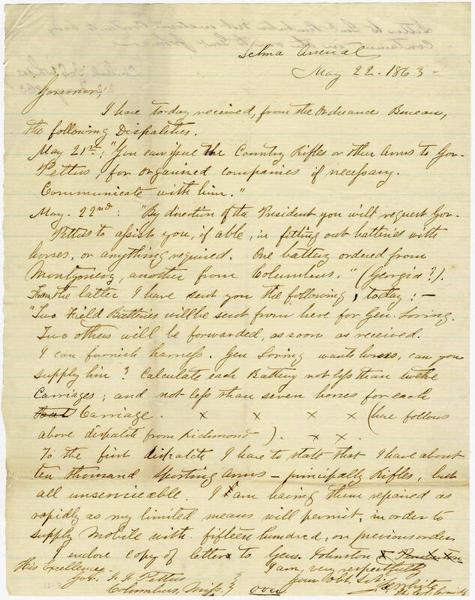 Selma Arsenal
May 22. 1863-
Governor,
I have to-day received, from the Ordnance Bureau,
the following Dispatches.
May 21st; "You can issue the Country Rifles or other arms to Gov.
Pettus, for organized companies if necessary.
Communicate with him."
May. 22nd: "By direction of the President you will request Gov.
Pettus to assist you, if able, in fitting out batteries with
horses, or anything required. One battery ordered from
Montgomery, another from Columbus." (Georgia?).
From the latter I have sent you the following, today: -
"Two Field Batteries will be sent from here for Gen. Loring.
Two others will be forwarded, as soon as received.
I can furnish harness. Gen Loring wants horses, can you
supply him? Calculate each Battery not less than twelve
Carriages; and not less than seven horses for each
Carriage. x x x x (here follows
above dispatch from Richmond). x x
To the first dispatch I have to state that I have about
ten thousand sporting arms - principally Rifles, but
all unserviceable. I am having them repaired as
rapidly as my limited means will permit, in order to
supply Mobile with fifteen hundred, on previous order
I enclose copy of letter to Genl. Johnston
I am, very respectfully
His Excellency
Your obt svt
Gov. J. J. Pettus
Columbus, Miss. over